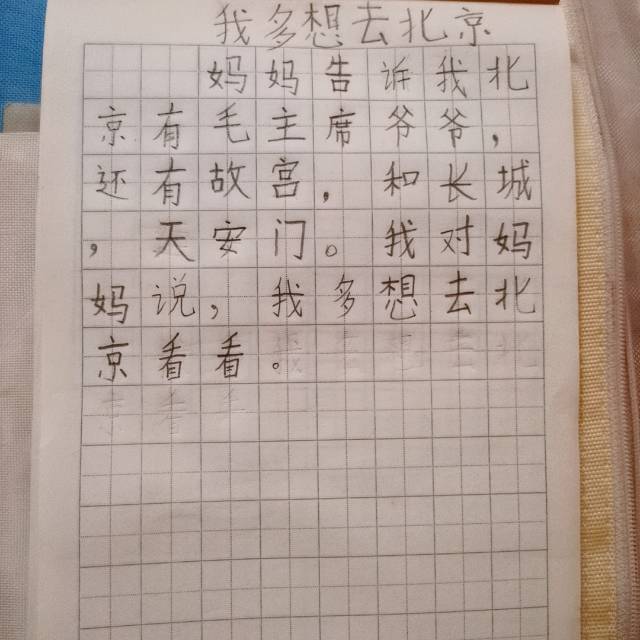 我多想去北京
妈妈告诉我北
京有毛主席爷爷，
还有故宫，和长城
，天安门。我对妈
妈说，我多想去北
京看看。